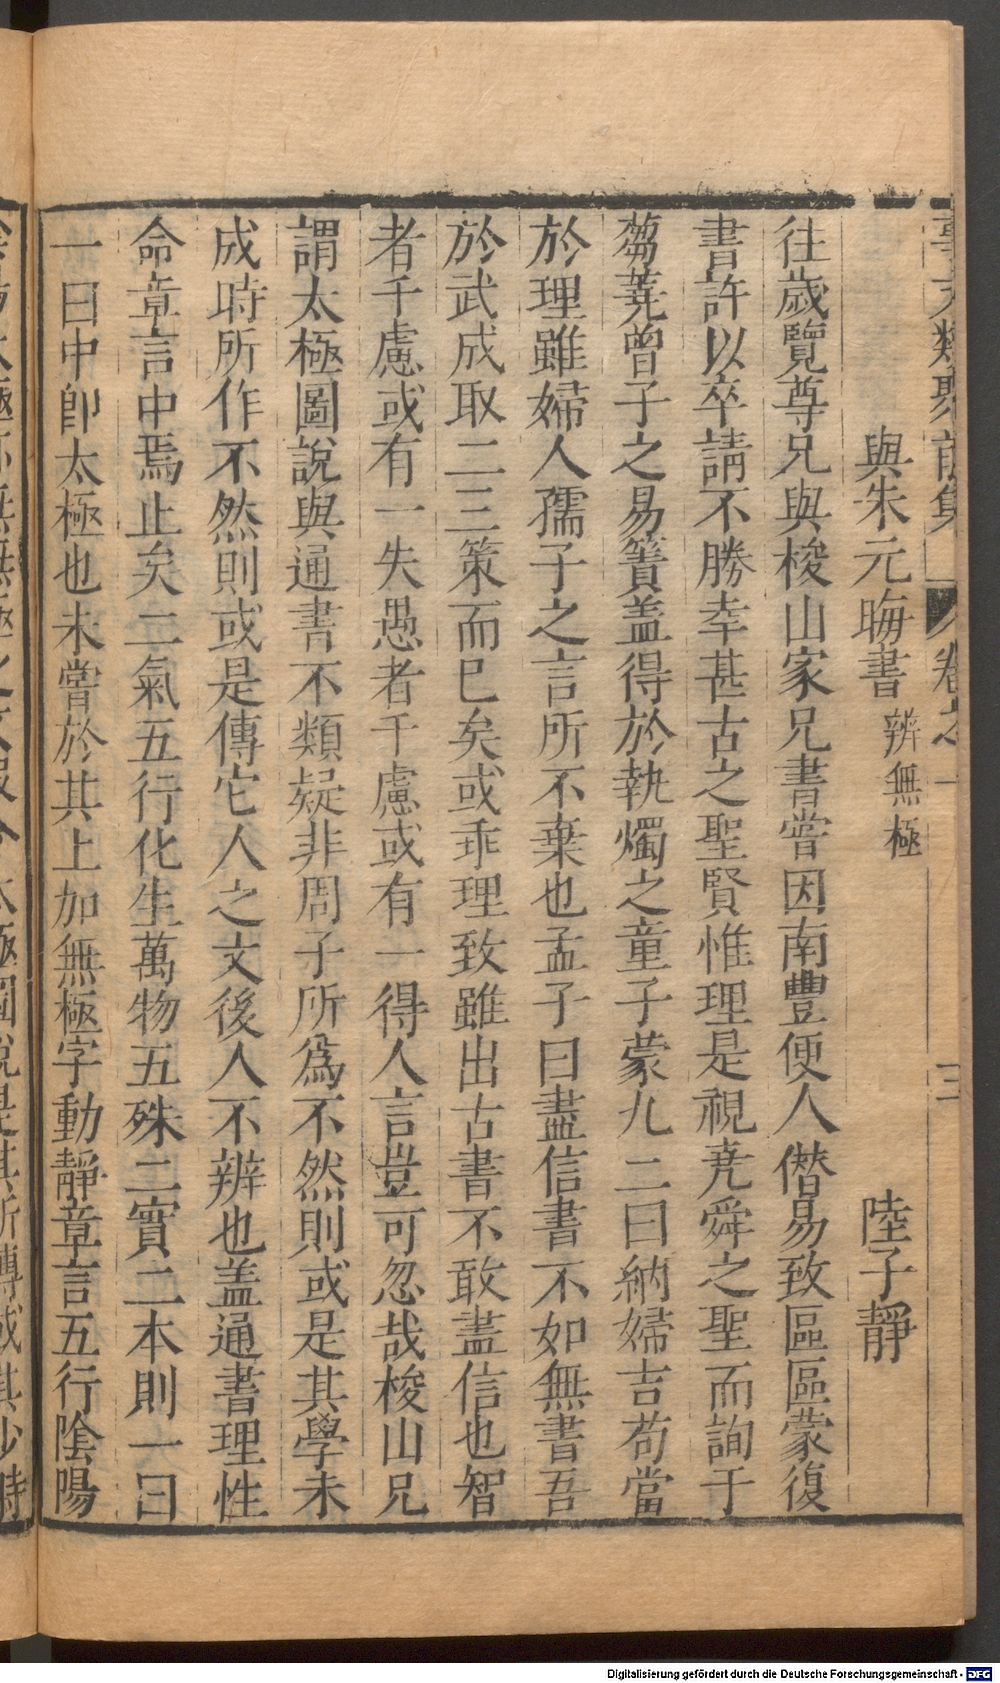 事文類聚前集 卷之一 三
與朱元晦書 辨無極 陸子靜
往歲覽尊兄與梭山家兄書嘗因南豐便人僭易致區區蒙復
書許以卒請不勝幸甚古之聖賢惟理是視堯舜之聖而詢于
蒭蕘曾子之易簀盖得於執燭之童子蒙九二曰納婦吉苟當
於理雖婦人孺子之言所不棄也孟子曰盡信書不如無書吾
於武成取二三策而已矣或乖理致雖出古書不敢盡信也智
者千慮或有一失愚者千慮或有一得人言豈可忽哉梭山兄
謂太極圖說與通書不類疑非周子所爲不然則或是其學未
成時所作不然則或是傳它人之文後人不辨也盖通書理性
命章言中焉止矣二氣五行化生萬物五殊二實二本則一曰
一曰中卽太極也未嘗於其上加無極字動靜章言五行陰陽
太極圖說是其所傳或其少時
Digitalisierung gefördert durch die Deutsche Forschungsgemeinschaft - DFG